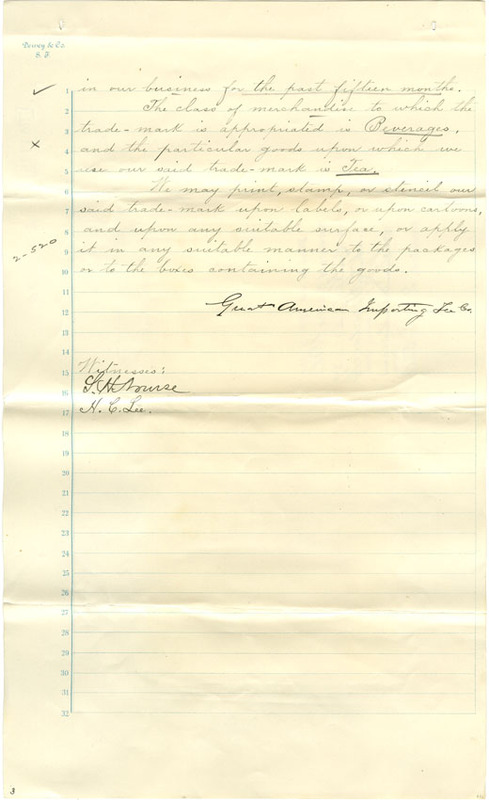 Dewey & Co.
S. F.
1 in our business for the past fifteen months.
2 The class of merchandise to which the
3 trade-mark is appropriated is Beverages,
4 and the particular goods upon which we
5 use our said trade-mark is Tea.
6 We may print, stamp, or stencil our
7 said trade-mark upon labels, or upon cartoons,
8 and upon any suitable surface, or apply
9 it in any suitable manner to the packages
10 or to the boxes containing the goods.
2-520
11
12 Great American Importing Tea Co.
13
14
15 Witnesses:
16 S. H. Nourse
17 H. C. Lee.
18
19
20
21
22
23
24
25
26
27
28
29
30
31
32
3